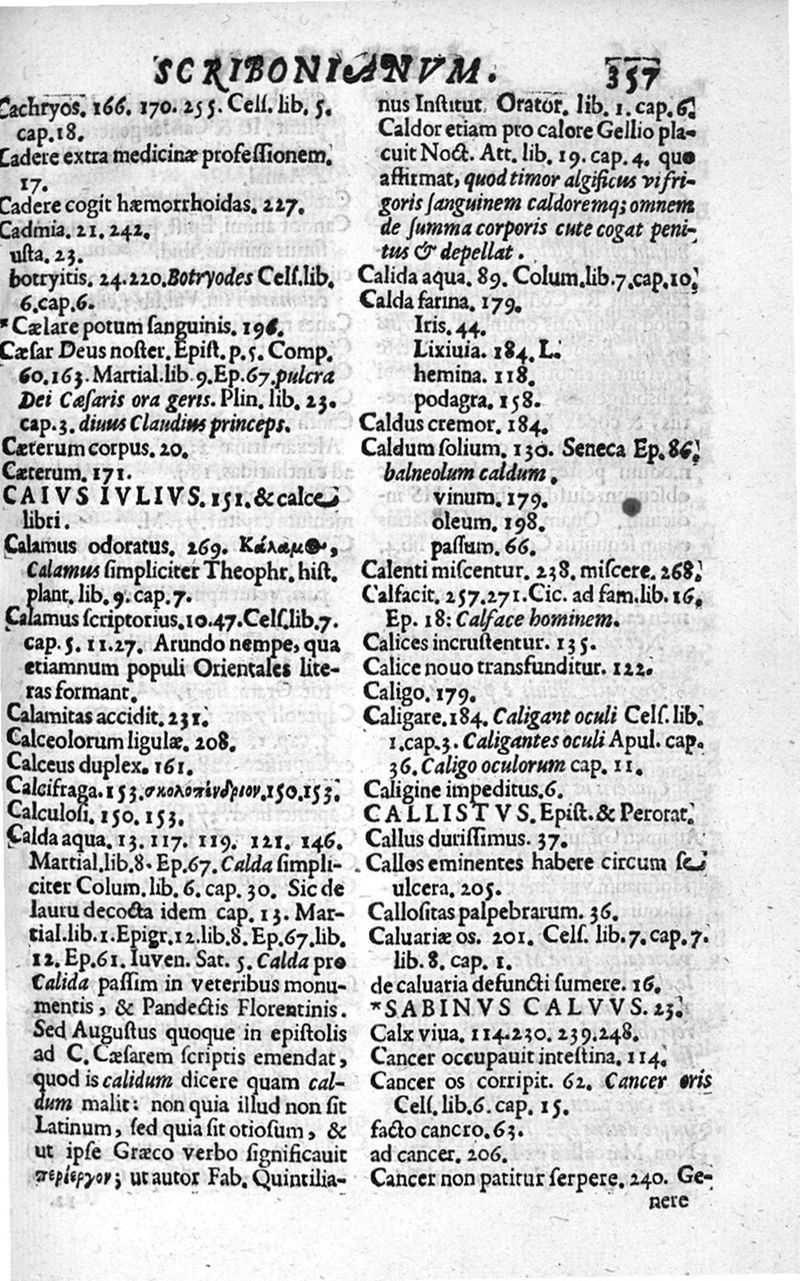 SCRIBONIANVM. 357
Cachryos. 166. 170. 255. Celſ. lib. 5.
cap. 18.
Cadere extra medicinæ profeſſionem.
17.
Cadere cogit hæmorrhoidas. 227.
Cadmia. 21. 242.
uſta. 23.
botryitis. 24. 220. Botryodes Celſ. lib.
6. cap. 6.
* Cælare potum ſanguinis. 196.
Cæſar Deus noſter. Epiſt. p. 5. Comp.
60. 163. Martial. lib 9. Ep. 67. pulcra
Dei Cæſaris ora geris. Plin. lib. 23.
cap. 3. diuus Claudius princeps.
Cæterum corpus. 20.
Cæterum. 171.
CAIVS IVLIVS. 151. & calce
libri.
Calamus odoratus. 269. Κάλαμος,
Calamus ſimpliciter Theophr. hiſt.
plant. lib. 9. cap. 7.
Calamus ſcriptorius. 10. 47. Celſ. lib. 7.
cap. 5. 11. 27. Arundo nempe, qua
etiamnum populi Orientales lite-
ras formant.
Calamitas accidit. 231.
Calceolorum ligulæ. 208.
Calceus duplex. 161.
Calcifraga. 153. σκολοπένδριον. 150. 153.
Calculoſi. 150. 153.
Calda aqua. 13. 117. 119. 121. 146.
Martial. lib. 8. Ep. 67. Calda ſimpli-
citer Colum. lib. 6. cap. 30. Sic de
lauru decocta idem cap. 13. Mar-
tial. lib. 1. Epigr. 12. lib. 8. Ep. 67. lib.
12. Ep. 61. Iuven. Sat. 5. Calda pro
Calida paſſim in veteribus monu-
mentis, & Pandectis Florentinis.
Sed Auguſtus quoque in epiſtolis
ad C. Cæſarem ſcriptis emendat,
quod is calidum dicere quam cal-
dum malit: non quia illud non ſit
Latinum, ſed quia ſit otioſum, &
ut ipſe Græco verbo ſignificauit
περίεργον; ut autor Fab. Quintilia-
nus Inſtitut. Orator. lib. 1. cap. 6.
Caldor etiam pro calore Gellio pla-
cuit Noct. Att. lib. 19. cap. 4. quo
affirmat, quod timor algificus vi fri-
goris ſanguinem caldoremq; omnem
de ſumma corporis cute cogat peni-
tus & depellat.
Calida aqua. 89. Colum. lib. 7. cap. 10.
Calda farina. 179.
Iris. 44.
Lixiuia. 184. L.
hemina. 118.
podagra. 158.
Caldus cremor. 184.
Caldum ſolium. 130. Seneca Ep. 86.
balneolum caldum.
vinum. 179.
oleum. 198.
paſſum. 66.
Calenti miſcentur. 238. miſcere. 268.
Calfacit. 257. 271. Cic. ad fam. lib. 16.
Ep. 18: Calface hominem.
Calices incruſtentur. 135.
Calice nouo transfunditur. 122.
Caligo. 179.
Caligare. 184. Caligant oculi Celſ. lib.
1. cap. 3. Caligantes oculi Apul. cap.
36. Caligo oculorum cap. 11.
Caligine impeditus. 6.
CALLISTVS. Epiſt. & Perorat.
Callus duriſſimus. 37.
Callos eminentes habere circum ſe
ulcera. 205.
Calloſitas palpebrarum. 36.
Caluariæ os. 201. Celſ. lib. 7. cap. 7.
lib. 8. cap. 1.
de caluaria defuncti ſumere. 16.
*SABINVS CALVVS. 23.
Calx viua. 114. 230. 239. 248.
Cancer occupauit inteſtina. 114.
Cancer os corripit. 62. Cancer oris
Celſ. lib. 6. cap. 15.
facto cancro. 63.
ad cancer. 206.
Cancer non patitur ſerpere. 240. Ge-
nere